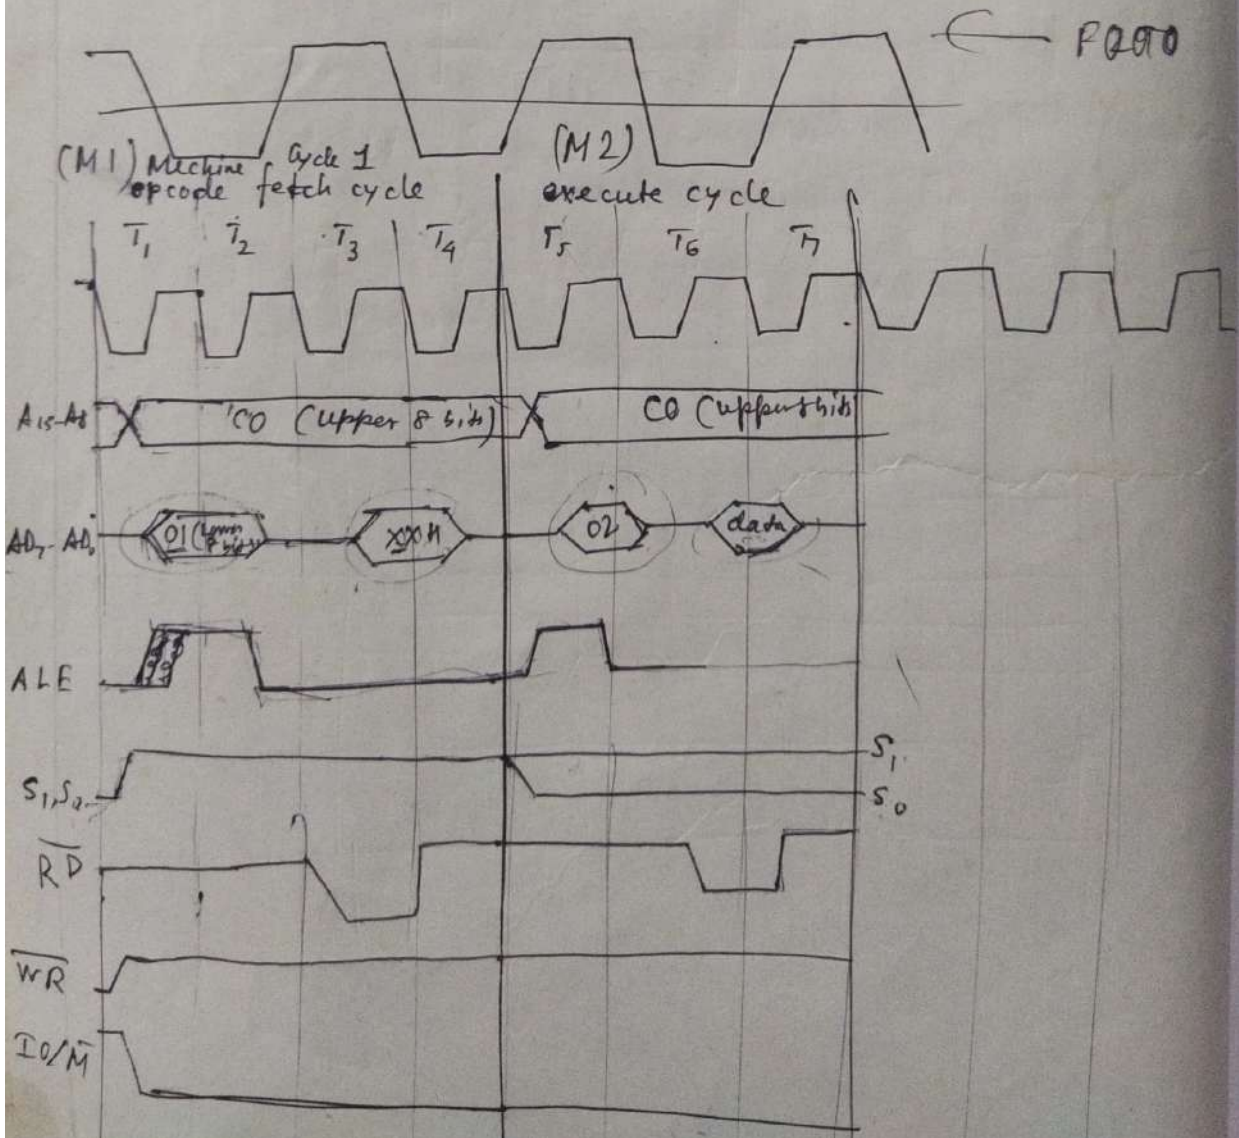 (M1) Mechine Cycle 1
opcode fetch cycle
(M2)
execute cycle
T1 T2 T3 T4 T5 T6 T7
A15-A8 CO (upper 8 bits) CO (upper 8 bits)
01 XXH 02 data
ALE
S1, S0 S1
S0
RD
WR
IO/M